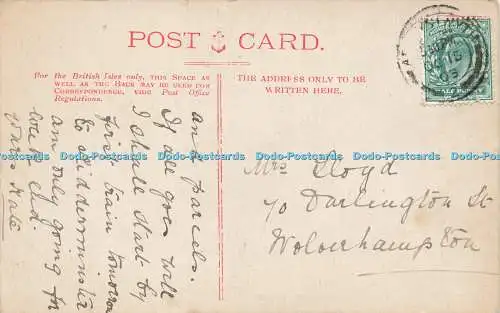 POST CARD.
For the British Isles only, THIS SPACE AS
WELL AS THE BACK MAY BE USED FOR
CORRESPONDENCE, VIDE Post Office
Regulations.
THE ADDRESS ONLY TO BE
WRITTEN HERE.
and parcels.
If all goes well
I shall start by
first train tomorrow
to Kidderminster
am only going for
week end.
yours Kate
Mrs Lloyd
70 Darlington St
Wolverhampton
Dodo-Postcards Dodo-Postcards Dodo-Postcards Dodo-Postcards Dodo-Postcards